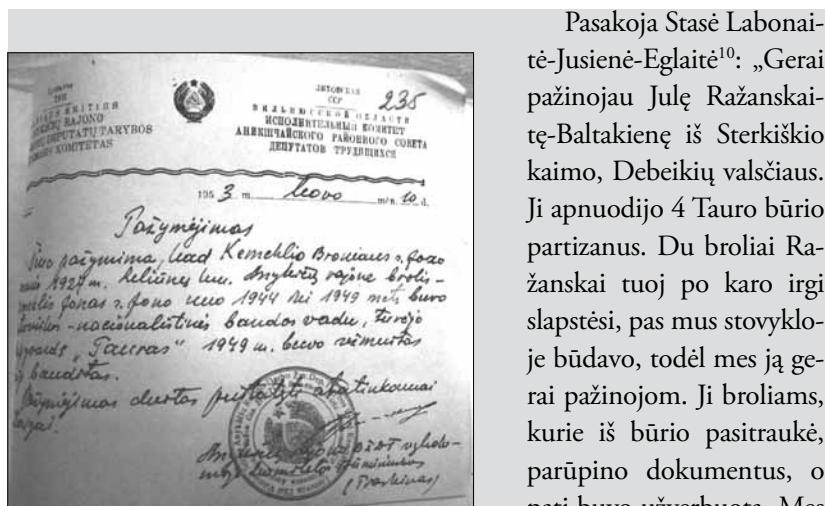 235
LIETUVOS
TSR
RAJONO
DEPUTATŲ TARYBOS
KOMITETAS
ЛИТОВСКАЯ
ССР
ВИЛЬНЮССКОЙ ОБЛАСТИ
ИСПОЛНИТЕЛЬНЫЙ КОМИТЕТ
АНИКЩЯЙСКОГО РАЙОННОГО СОВЕТА
ДЕПУТАТОВ ТРУДЯЩИХСЯ
195 3 m. kovo 10 d.
Pažymėjimas
pažymima, kad Kemeklio Broniaus s. Jono
1927 m. km. Anykščių rajone brolis
Jonas s. Jono nuo 1944 iki 1949 metų buvo
nacionalistinės baudos vadu, turėjo
„Tauras" 1949 m. buvo
banditas.
duotas pristatyti atatinkamai
Pasakoja Stasė Labonai-
tė-Jusienė-Eglaitė¹⁰: „Gerai
pažinojau Julę Ražanskai-
tę-Baltakienę iš Sterkiškio
kaimo, Debeikių valsčiaus.
Ji apnuodijo 4 Tauro būrio
partizanus. Du broliai Ra-
žanskai tuoj po karo irgi
slapstėsi, pas mus stovyklo-
je būdavo, todėl mes ją ge-
rai pažinojom. Ji broliams,
kurie iš būrio pasitraukė,
parūpino dokumentus, o
pati buvo užverbuota. Mes